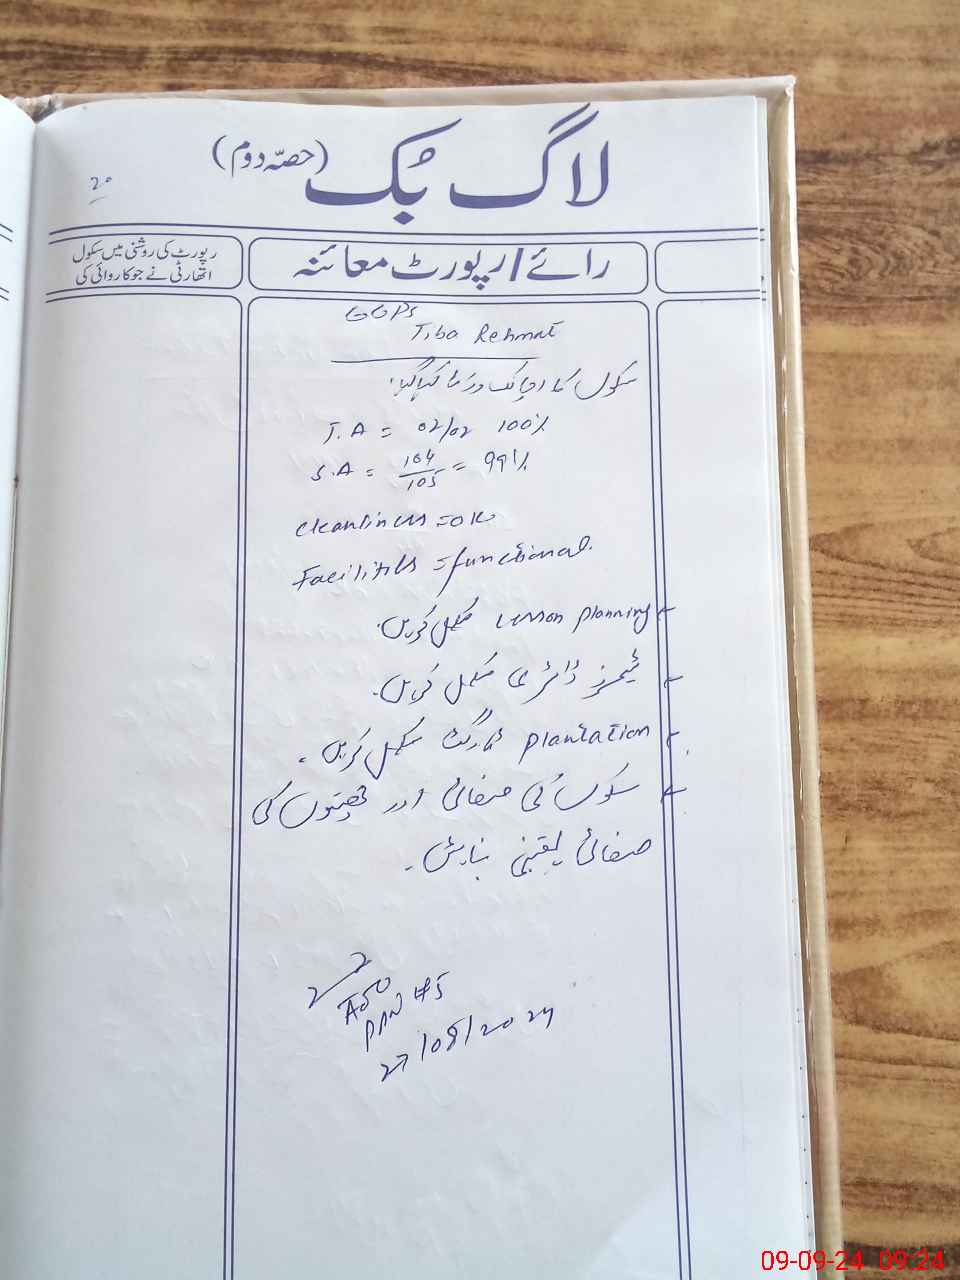 لاگ بُک (حصّہ دوم)
20
رائے/رپورٹ معائنہ
رپورٹ کی روشنی میں سکول
اتھارٹی نے جو کاروائی کی
GGPS
Tiba Rehmat
سکول کا اچانک وزٹ کیا گیا۔
T.A = 02/02 100%
S.A = 104/105 = 99%
Cleanliness = ok
Facilities = functional.
Lesson planning مکمل کریں۔
ٹیچرز ڈائری مکمل کریں۔
plantation ٹارگٹ مکمل کریں۔
سکول کی صفائی اور چھتوں کی
صفائی یقینی بنائیں۔
AEO
#5
27/08/2024
09-09-24 09:24